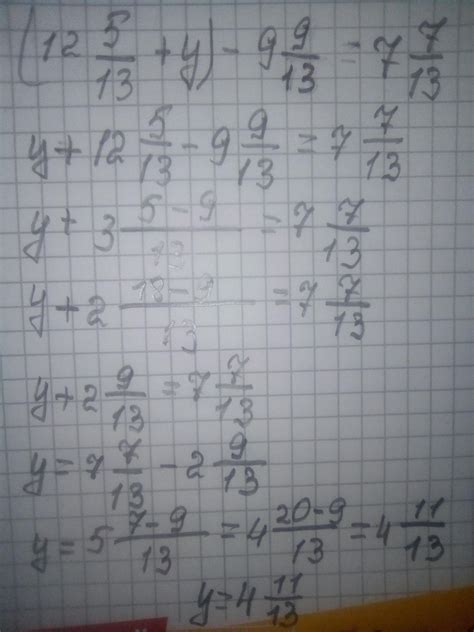 (12 5/13 + y) - 9 9/13 = 7 7/13
y + 12 5/13 - 9 9/13 = 7 7/13
y + 3 (5-9)/13 = 7 7/13
y + 2 (18-9)/13 = 7 7/13
y + 2 9/13 = 7 7/13
y = 7 7/13 - 2 9/13
y = 5 (7-9)/13 = 4 (20-9)/13 = 4 11/13
y = 4 11/13